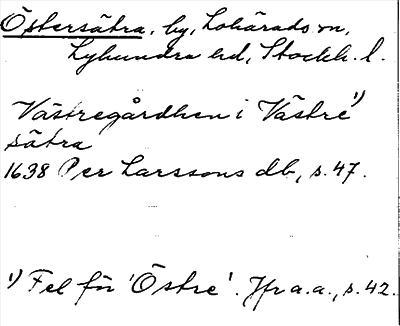 Östersätra, by, Lohärads sn,
Lyhundra hd, Stockh. l.
Västregårdhen i Västre¹⁾
sätra
1638 Per Larssons db, s. 47.
¹⁾ Fel för 'Östre'. Jfr a.a., s. 42.